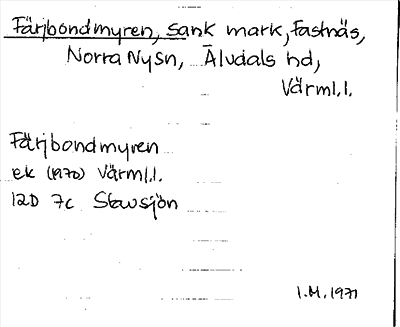 Färjbondmyren, sank mark, Fastnäs,
Norra Ny sn, Älvdals hd,
Värml. l.
Färjbondmyren
ek (1970) Värml. l.
12D 7c Stavsjön
I.M. 1971